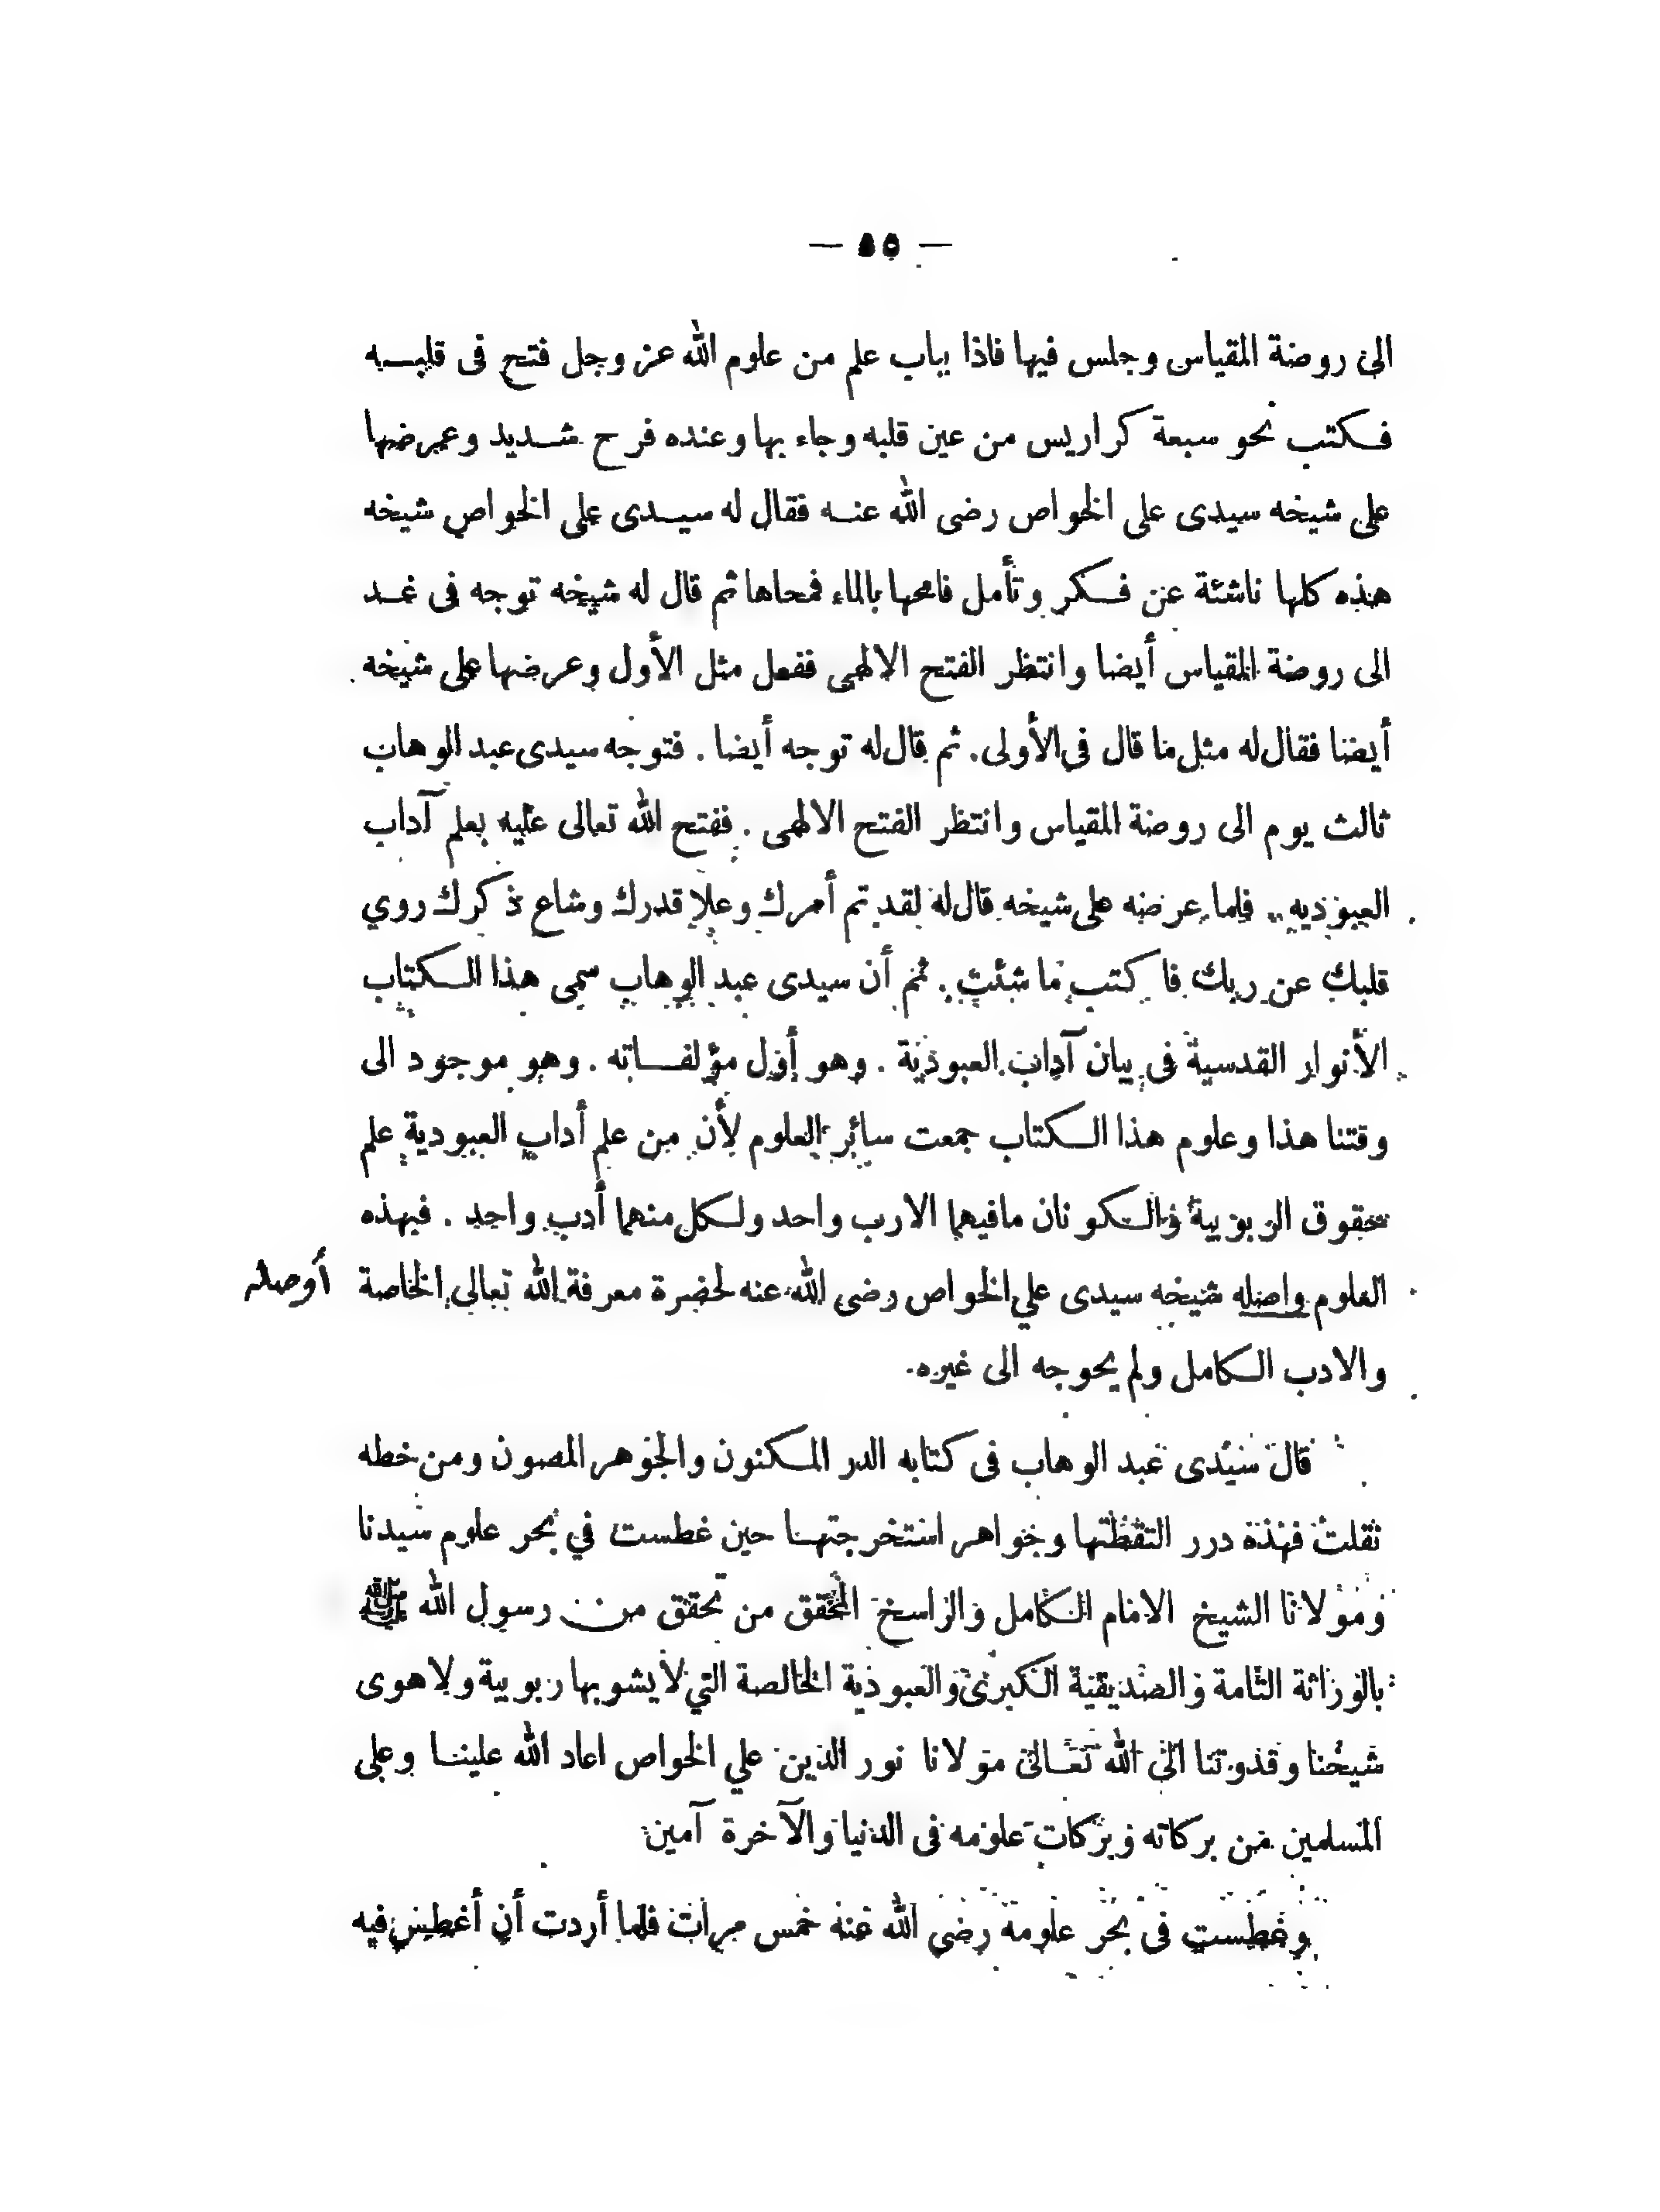 — ٥٥ —
الى روضة المقياس وجلس فيها فاذا بباب علم من علوم الله عز وجل فتح فى قلبـــه
فـكتب نحو سبعة كراريس من عين قلبه وجاء بها وعنده فرح شـديد وعرضها
على شيخه سيدى على الخواص رضى الله عنـه فقال له سيـدى على الخواص شيخه
هذه كلها ناشئة عن فـكر وتأمل فامحها بالماء فمحاها ثم قال له شيخه توجه فى غـد
الى روضة المقياس أيضا وانتظر الفتح الالهى ففعل مثل الأول وعرضها على شيخه
أيضا فقال له مثل ما قال فى الأولى. ثم قال له توجه أيضا . فتوجه سيدى عبد الوهاب
ثالث يوم الى روضة المقياس وانتظر الفتح الالهى . ففتح الله تعالى عليه بعلم آداب
العبوديه . فلما عرضه على شيخه قال له لقد تم أمرك وعلا قدرك وشاع ذكرك روي
قلبك عن ربك فاكتب ما شئت . ثم أن سيدى عبد الوهاب سمى هذا الـكتاب
الأنوار القدسية فى بيان آداب العبودية . وهو أول مؤلفـــاته . وهو موجود الى
وقتنا هذا وعلوم هذا الـكتاب جمعت سائر العلوم لأن من علم أداب العبودية علم
حقوق الربوبية والـكونان مافيهما الارب واحد ولـكل منهما أدب واحد . فبهذه
العلوم واصله شيخه سيدى علي الخواص رضى الله عنه لحضرة معرفة الله تعالى الخاصة
أوصله
والادب الـكامل ولم يحوجه الى غيره.
قال سيدى عبد الوهاب فى كتابه الدر المـكنون والجوهر المصون ومن خطه
نقلت فهذه درر التقطتها وجواهر استخرجتهـا حين غطست في بحر علوم سيدنا
ومولانا الشيخ الامام الـكامل والراسخ المحقق من تحقق من رسول الله ﷺ
بالوراثة التامة والصديقية الـكبرى والعبودية الخالصة التي لا يشوبها ربوبية ولا هوى
شيخنا وقدوتنا الى الله تعـالى مولانا نور الدين علي الخواص اعاد الله علينـا وعلى
المسلمين من بركاته وبركات علومه فى الدنيا والآخرة آمين
وغطست فى بحر علومه رضى الله عنه خمس مرات فلما أردت أن أغطس فيه